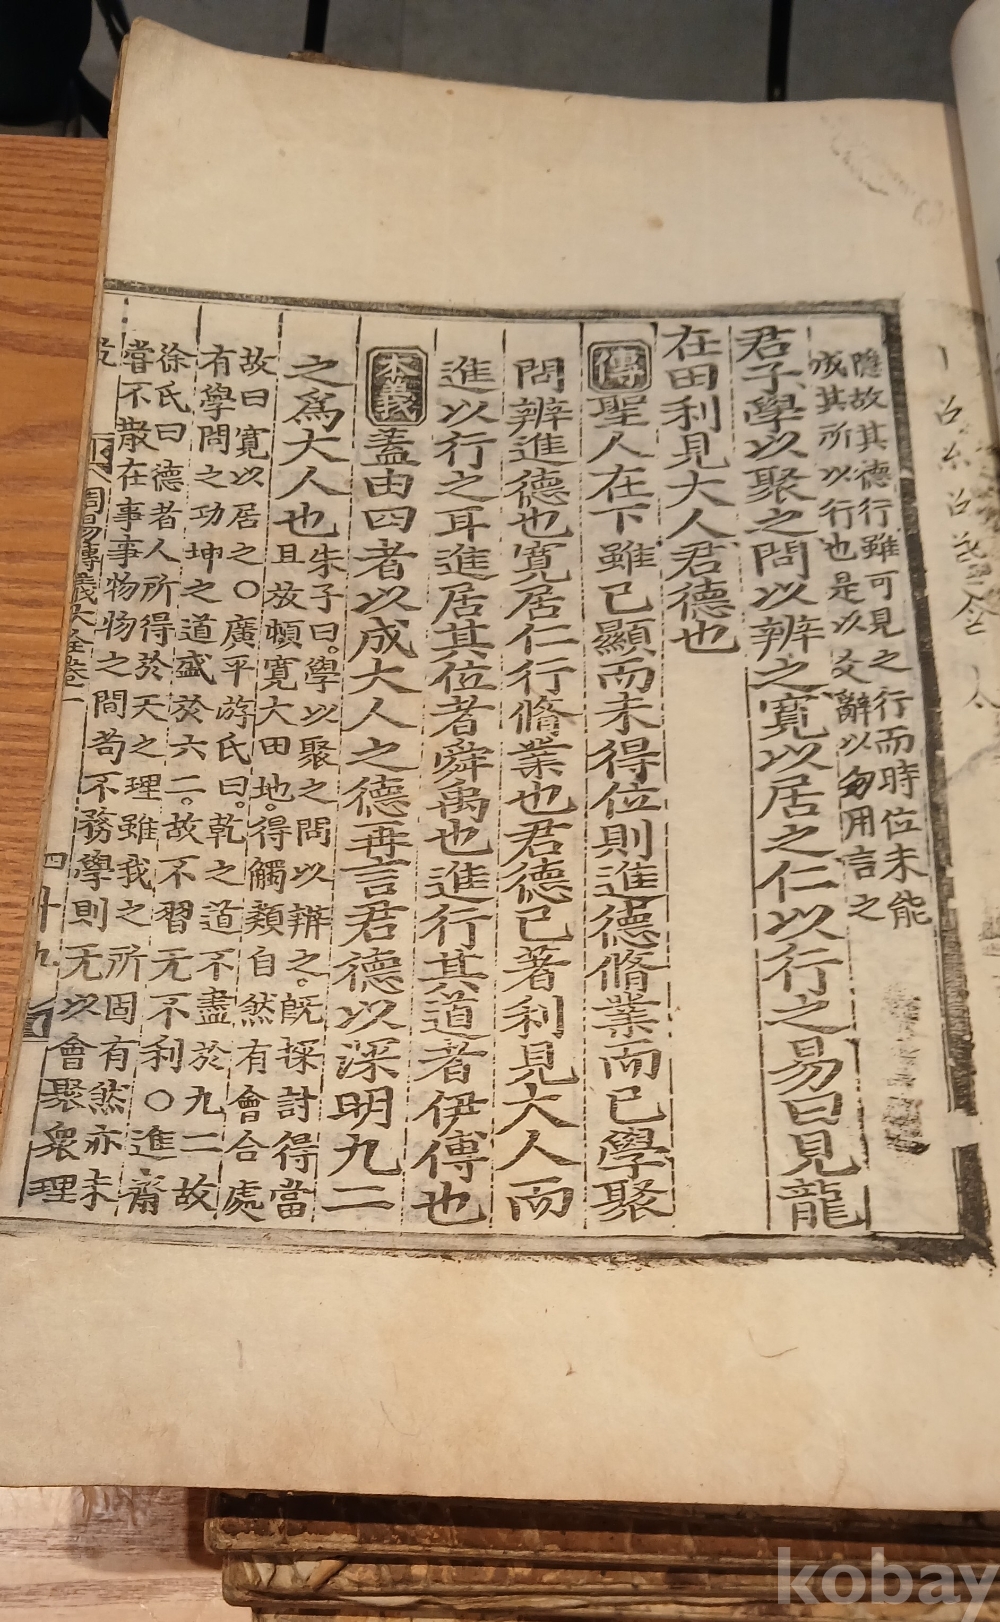 隱故其德行雖可見之行而時位未能
成其所以行也是以爻辭以勿用言之
君子學以聚之問以辨之寬以居之仁以行之易曰見龍
在田利見大人君德也
傳聖人在下雖已顯而未得位則進德脩業而已學聚
問辨進德也寬居仁行脩業也君德已著利見大人而
進以行之耳進居其位者舜禹也進行其道者伊傅也
本義蓋由四者以成大人之德再言君德以深明九二
之爲大人也朱子曰學以聚之問以辨之旣探討得當
且放頓寬大田地得觸類自然有會合處
故曰寬以居之○廣平游氏曰乾之道不盡於九二故
有學問之功坤之道盛於六二故不習无不利○進齋
徐氏曰德者人所得於天之理雖我之所固有然亦未
嘗不散在事事物物之間苟不務學則无以會聚衆理
周易傳義大全卷一
四十九
kobay